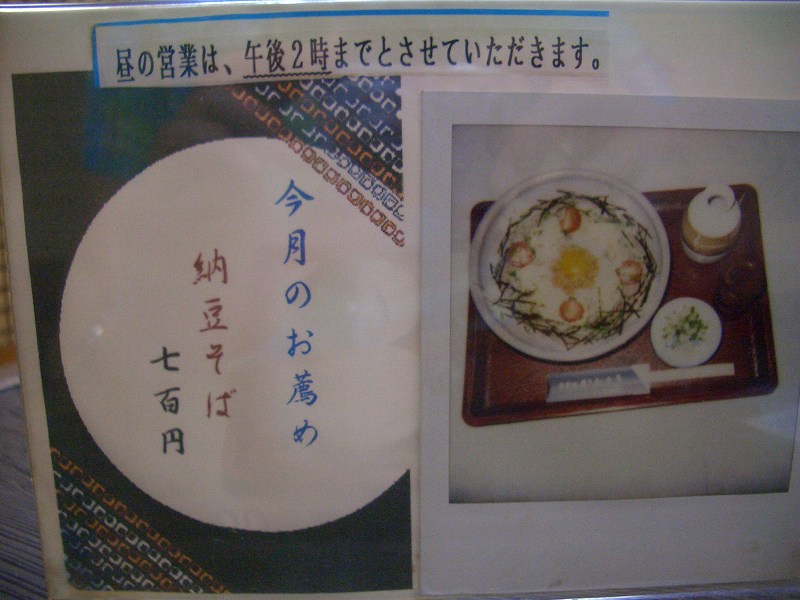 昼の営業は、午後2時までとさせていただきます。
今月のお薦め
納豆そば
七百円